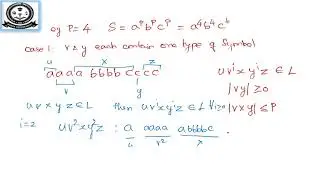 eg P=4 S = aᵖbᵖcᵖ = a⁴b⁴c⁴
case 1: v & y each contain one type of Symbol
u x z
aaaa bbbb cccc
v y
uvⁱxyⁱz ∈ L
|vy| ≥ 0
|vxy| ≤ P
uvxyz ∈ L then uvⁱxyⁱz ∈ L ∀i≥0
i=2 uv²xy²z : a aaaa abbbbc
u v² x